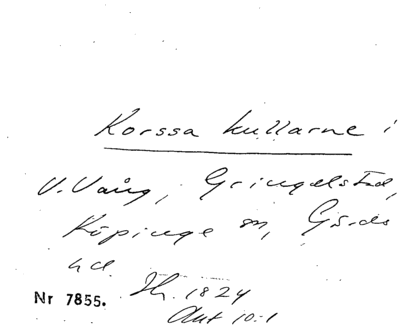 Korssa kullarne i
V. Vång, Gringelstad,
Köpinge sn, Gärds
hd
Nr 7855. Th. 1824
Ant 10:1